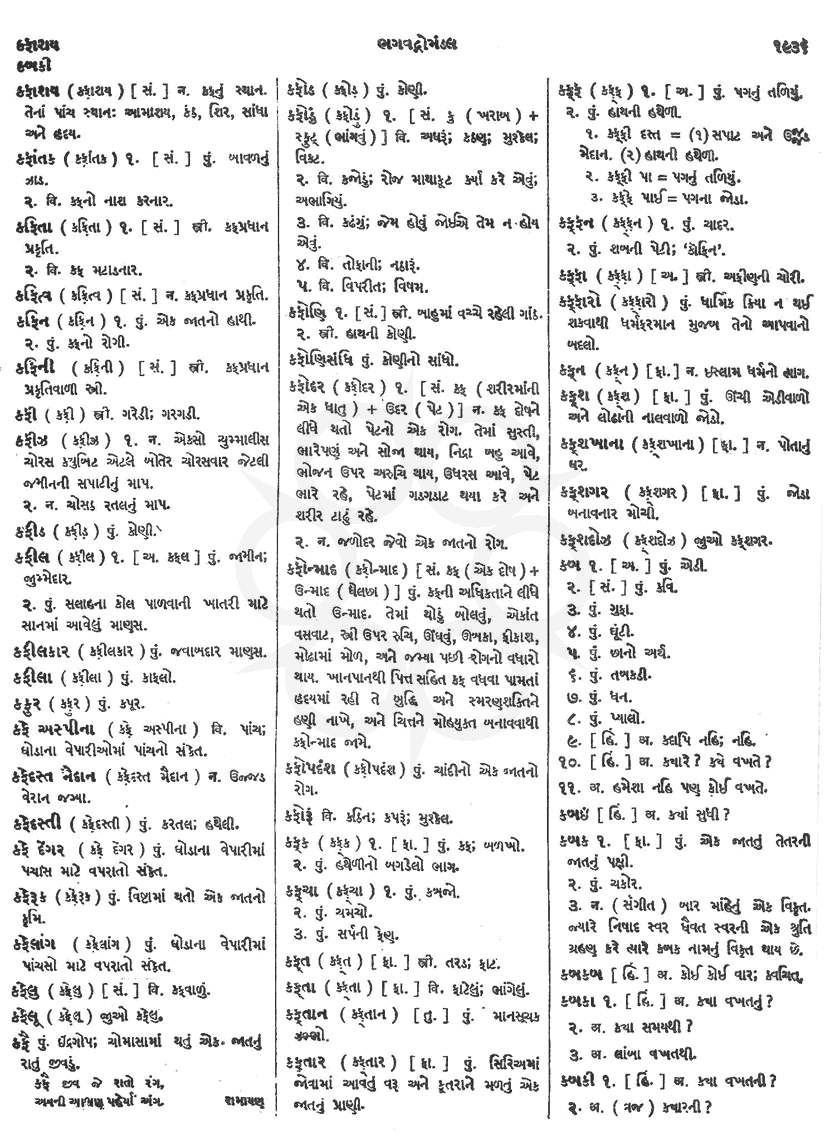 કફાશય
કબકી
ભગવદ્ગોમંડલ
૧૯૩૬
કફાશય ( કફ઼ાશય ) [ સં. ] ન. કફનું સ્થાન.
તેનાં પાંચ સ્થાનઃ આમાશય, કંઠ, શિર, સાંધા
અને હૃદય.
કફાંતક ( કફ઼ાંતક ) ૧. [ સં. ] પું. બાવળનું
ઝાડ.
૨. વિ. કફનો નાશ કરનાર.
કફિતા ( કફ઼િતા ) ૧. [ સં. ] સ્ત્રી. કફપ્રધાન
પ્રકૃતિ.
૨. વિ. કફ મટાડનાર.
કફિત્વ ( કફ઼િત્વ ) [ સં. ] ન. કફપ્રધાન પ્રકૃતિ.
કફિન ( કફ઼િન ) ૧. પું. એક જાતનો હાથી.
૨. પું. કફનો રોગી.
કફિની ( કફ઼િની ) [ સં. ] સ્ત્રી. કફપ્રધાન
પ્રકૃતિવાળી સ્ત્રી.
કફી ( કફ઼ી ) સ્ત્રી. ગરેડી; ગરગડી.
કફીઝ ( કફ઼ીઝ ) ૧. ન. એકસો ચુમ્માલીસ
ચોરસ ક્યુબિટ એટલે બોતેર ચોરસવાર જેટલી
જમીનની સપાટીનું માપ.
૨. ન. ચોસઠ રતલનું માપ.
કફીડ ( કફ઼ીડ ) પું. કોણી.
કફીલ ( કફ઼ીલ ) ૧. [ અ. કફ઼લ ] પું. જામીન;
જુમ્મેદાર.
૨. પું. સલાહના કોલ પાળવાની ખાતરી માટે
સાનમાં આવેલું માણુસ.
કફીલકાર ( કફ઼ીલકાર ) પું. જવાબદાર માણુસ.
કફીલા ( કફ઼ીલા ) પું. કાફલો.
કફુર ( કફ઼ુર ) પું. કપૂર.
કફે અસ્પીના ( કફ઼ે અસ્પીના ) વિ. પાંચ;
ઘોડાના વેપારીઓમાં પાંચનો સંકેત.
કફેદસ્ત મૈદાન ( કફ઼ેદસ્ત મૈદાન ) ન. ઉજ્જડ
વેરાન જગ્યા.
કફેદસ્તી ( કફ઼ેદસ્તી ) પું. કરતલ; હથેલી.
કફે દેંગર ( કફ઼ે દેંગર ) પું. ઘોડાના વેપારીમાં
પચાસ માટે વપરાતો સંકેત.
કફેરૂક ( કફ઼ેરૂક ) પું. વિષ્ટામાં થતો એક જાતનો
કૃમિ.
કફેલાંગ ( કફ઼ેલાંગ ) પું. ઘોડાના વેપારીમાં
પાંચસો માટે વપરાતો સંકેત.
કફેલુ ( કફ઼ેલુ ) [ સં. ] વિ. કફવાળું.
કફેલૂ ( કફ઼ેલૂ ) જુઓ કફેલુ.
કફૈ પું. ઇંદ્રગોપ; ચોમાસામાં થતું એક જાતનું
રાતું જીવડું.
કફૈ જીવ જે રાતો રંગ,
અવની આભ્રણ પહેર્યાં અંગ. રામાયણ
કફોડ ( કફ઼ોડ ) પું. કોણી.
કફોડું ( કફ઼ોડું ) ૧. [ સં. કુ ( ખરાબ ) +
સ્ફુટ્ ( ભાંગવું ) ] વિ. અઘરૂં; કઠણ; મુશ્કેલ;
વિકટ.
૨. વિ. કજોડું; રોજ માથાકૂટ કર્યા કરે એવું;
અભાગિયું.
૩. વિ. કઢંગું; જેમ હોવું જોઈએ તેમ ન હોય
એવું.
૪. વિ. તોફાની; નઠારૂં.
૫. વિ. વિપરીત; વિષમ.
કફોણિ ૧. [ સં. ] સ્ત્રી. બાહુમાં વચ્ચે રહેલી ગાંઠ.
૨. સ્ત્રી. હાથની કોણી.
કફોણિસંધિ પું. કોણીનો સાંધો.
કફોદર ( કફ઼ોદર ) ૧. [ સં. કફ ( શરીરમાંની
એક ધાતુ ) + ઉદર ( પેટ ) ] ન. કફ દોષને
લીધે થતો પેટનો એક રોગ. તેમાં સુસ્તી,
ભારેપણું અને સોજા થાય, નિદ્રા બહુ આવે,
ભોજન ઉપર અરુચિ થાય, ઉધરસ આવે, પેટ
ભારે રહે, પેટમાં ગડગડાટ થયા કરે અને
શરીર ટાઢું રહે.
૨. ન. જળોદર જેવો એક જાતનો રોગ.
કફોન્માદ ( કફ઼ોન્માદ ) [ સં. કફ ( એક દોષ ) +
ઉન્માદ ( ઘેલછા ) ] પું. કફની અધિકતાને લીધે
થતો ઉન્માદ. તેમાં થોડું બોલવું, એકાંત
વસવાટ, સ્ત્રી ઉપર રુચિ, ઊંઘવું, ઊબકા, ફીકાશ,
મોઢામાં મોળ, અને જમ્યા પછી રોગનો વધારો
થાય. ખાનપાનથી પિત્ત સહિત કફ વધવા પામતાં
હૃદયમાં રહી તે બુદ્ધિ અને સ્મરણશક્તિને
હણી નાખે, અને ચિત્તને મોહયુક્ત બનાવવાથી
કફોન્માદ જામે.
કફોપદંશ ( કફ઼ોપદંશ ) પું. ચાંદીનો એક જાતનો
રોગ.
કફોરૂં વિ. કઠિન; કપરૂં; મુશ્કેલ.
કફ્ફ ( કફ઼્ફ઼ ) ૧. [ ફા. ] પું. કફ; બળખો.
૨. પું. હથેળીનો બગડેલો ભાગ.
કફ્ચા ( કફ઼્ચા ) ૧. પું. કબજો.
૨. પું. ચમચો.
૩. પું. સર્પની ફેણ.
કફ્ત ( કફ઼્ત ) [ ફા. ] સ્ત્રી. તરડ; ફાટ.
કફ્તા ( કફ઼્તા ) [ ફા. ] વિ. ફાટેલું; ભાંગેલું.
કફ્તાન ( કફ઼્તાન ) [ તુ. ] પું. માનસૂચક
ઝભ્ભો.
કફ્તાર ( કફ઼્તાર ) [ ફા. ] પું. સિરિઅમાં
જોવામાં આવતું વરૂ અને કૂતરાને મળતું એક
જાતનું પ્રાણી.
કફ્ફ ( કફ઼્ફ઼ ) ૧. [ અ. ] પું. પગનું તળિયું.
૨. પું. હાથની હથેળી.
૧. કફ્ફી દસ્ત = (૧) સપાટ અને ઉજ્જડ
મેદાન. (૨) હાથની હથેળી.
૨. કફ્ફી પા = પગનું તળિયું.
૩. કફ્ફે પાઈ = પગના જોડા.
કફ્ફન ( કફ઼્ફ઼ન ) ૧. પું. ચાદર.
૨. પું. શબની પેટી; ‘કૉફિન’.
કફ્ફા ( કફ઼્ફ઼ા ) [ અ. ] સ્ત્રી. અફીણની ચોરી.
કફ્ફારો ( કફ઼્ફ઼ારો ) પું. ધાર્મિક ક્રિયા ન થઈ
શકવાથી ધર્મફરમાન મુજબ તેનો આપવાનો
બદલો.
કફ્ન ( કફ઼્ન ) [ ફા. ] ન. ઇસ્લામ ધર્મનો ત્યાગ.
કફ્શ ( કફ઼્શ ) [ ફા. ] પું. ઊંચી એડીવાળો
અને લોઢાની નાળવાળો જોડો.
કફ્શખાના ( કફ઼્શખાના ) [ ફા. ] ન. પોતાનું
ઘર.
કફ્શગર ( કફ઼્શગર ) [ ફા. ] પું. જોડા
બનાવનાર મોચી.
કફ્શદોઝ ( કફ઼્શદોઝ ) જુઓ કફ્શગર.
કબ ૧. [ અ. ] પું. એડી.
૨. [ સં. ] પું. કવિ.
૩. પું. ગુફા.
૪. પું. ઘૂંટી.
૫. પું. છાનો અર્થ.
૬. પું. તબકડી.
૭. પું. ધન.
૮. પું. પ્યાલો.
૯. [ હિં. ] અ. કદાપિ નહિ; નહિ.
૧૦. [ હિં. ] અ. ક્યારે? કયે વખતે?
૧૧. અ. હમેશા નહિ પણ કોઈ વખતે.
કબઇં [ હિં. ] અ. ક્યાં સુધી?
કબક ૧. [ ફા. ] પું. એક જાતનું તેતરની
જાતનું પક્ષી.
૨. પું. ચકોર.
૩. ન. ( સંગીત ) બાર માંહેનું એક વિકૃત.
જ્યારે નિષાદ સ્વર ધૈવત સ્વરની એક શ્રુતિ
ગ્રહણ કરે ત્યારે કબક નામનું વિકૃત થાય છે.
કબકબ [ હિં. ] અ. કોઈ કોઈ વાર; ક્વચિત્.
કબકા ૧. [ હિં. ] અ. કયા વખતનું?
૨. અ. કયા સમયથી?
૩. અ. લાંબા વખતથી.
કબકી ૧. [ હિં. ] અ. કયા વખતની?
૨. અ. ( વ્રજ ) ક્યારની?